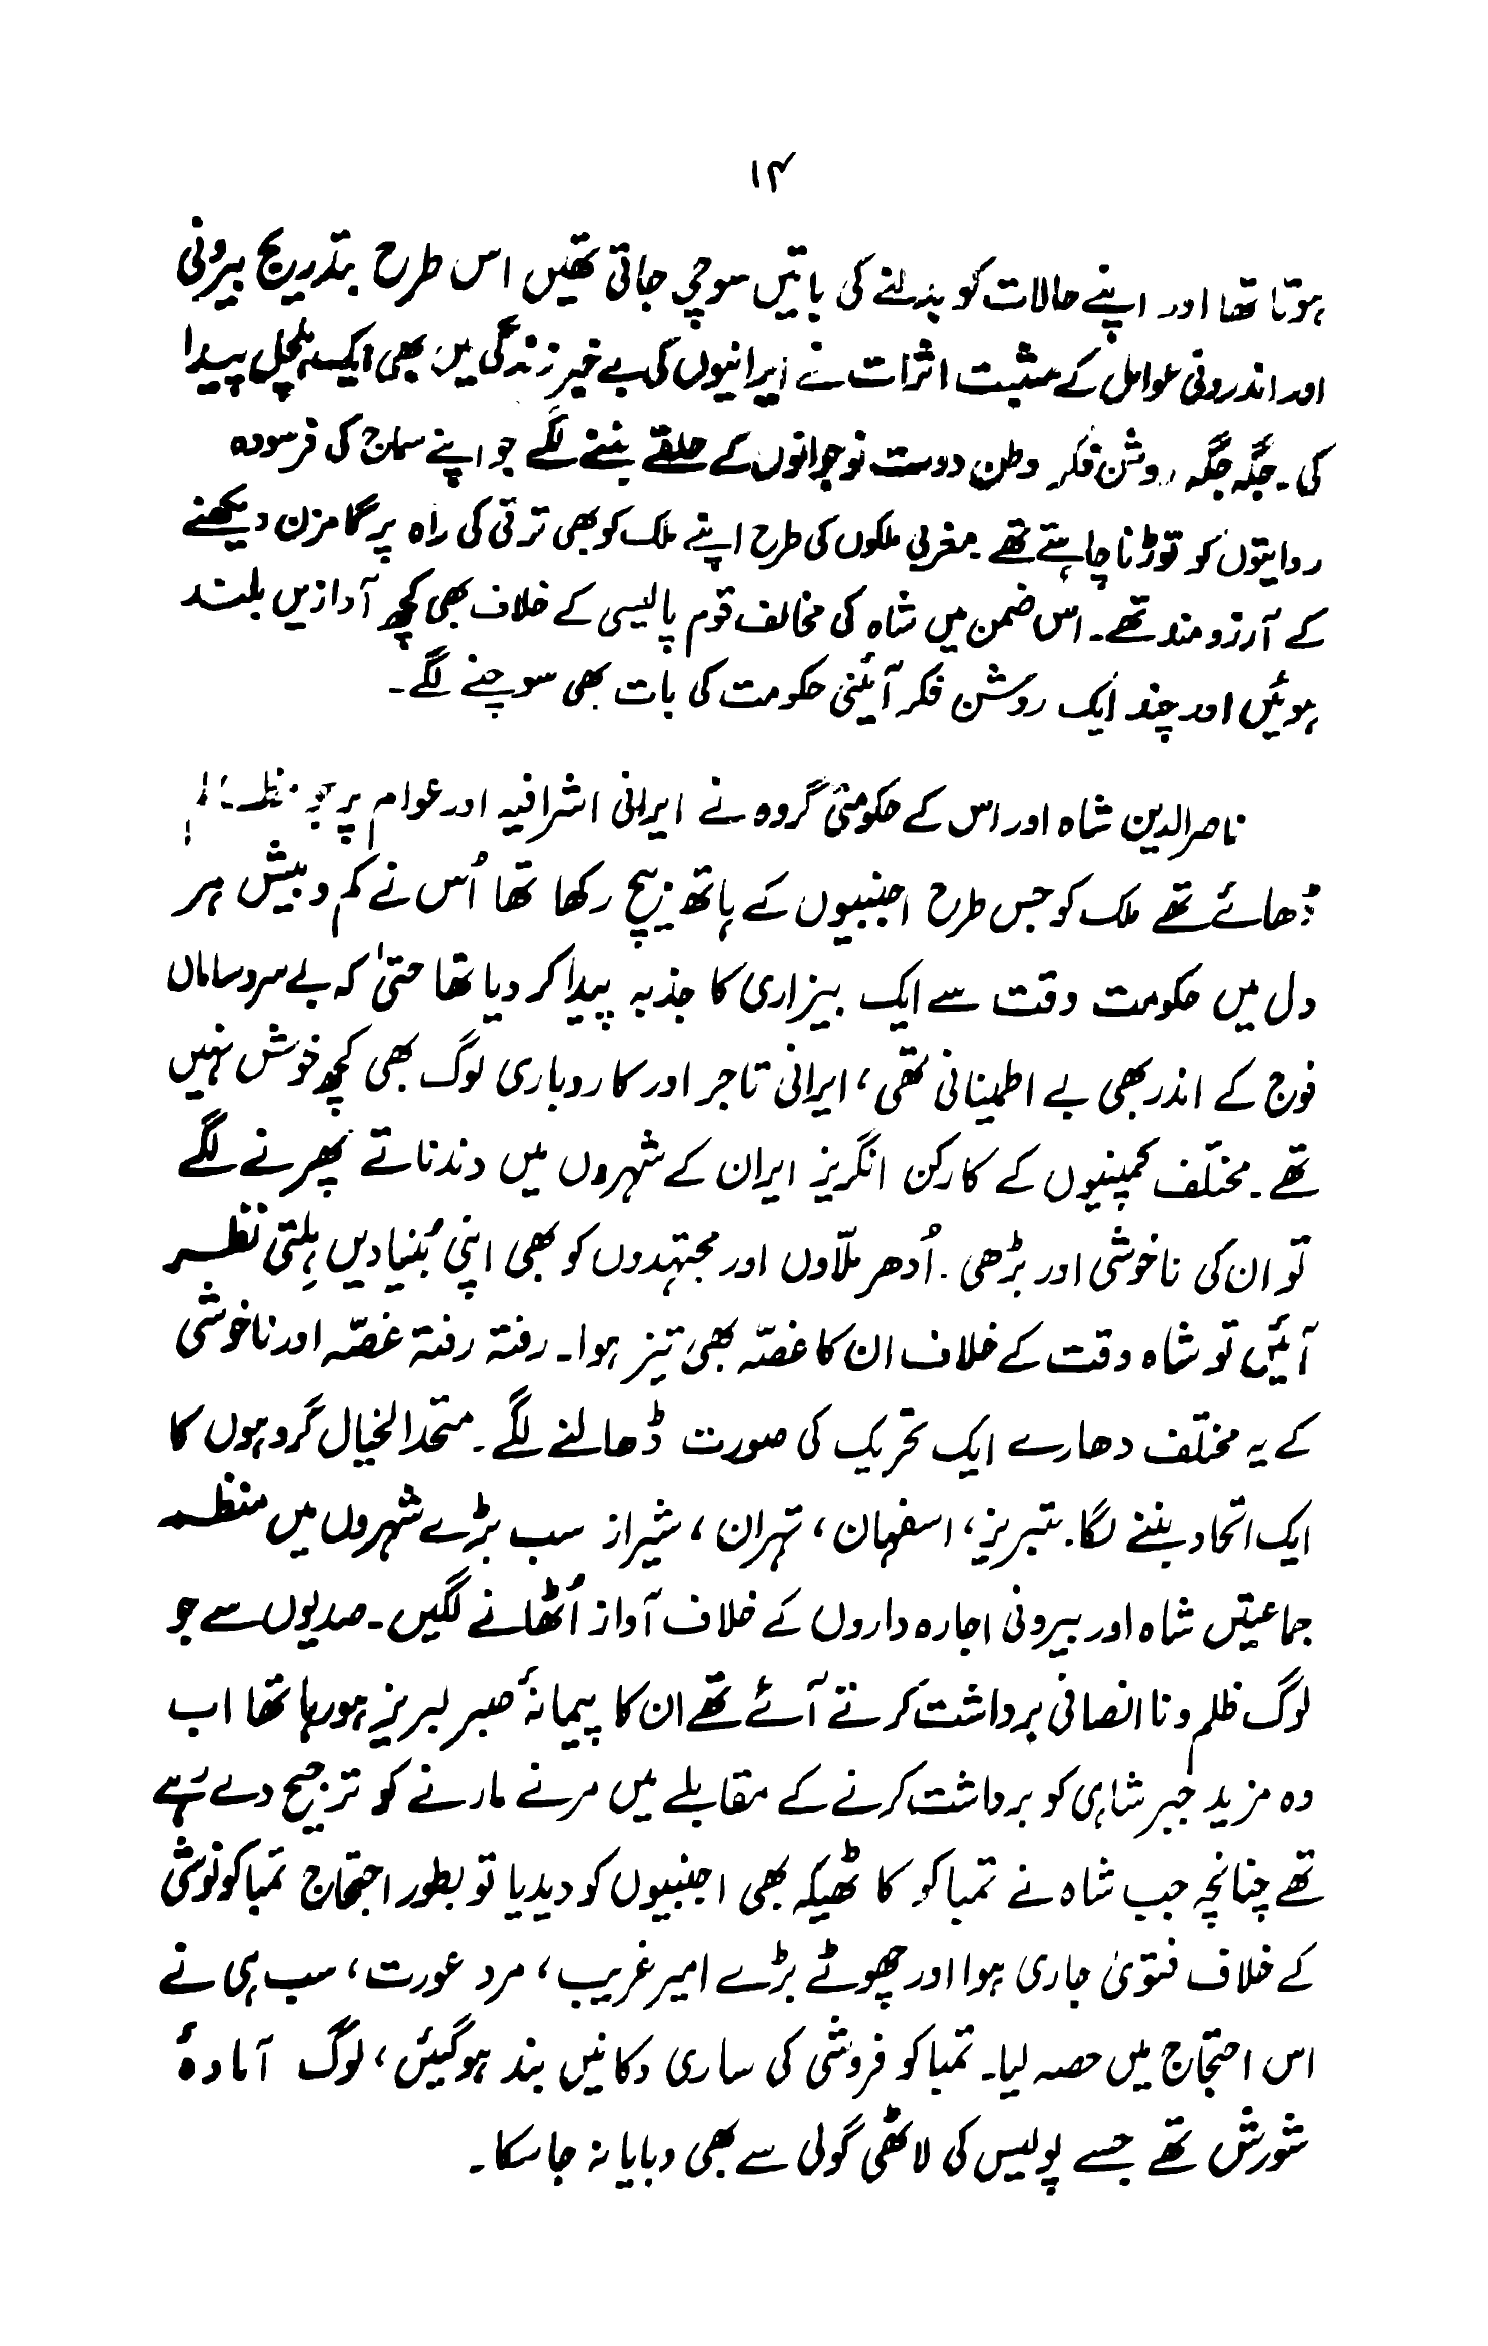 ۱۴
ہوتا تھا اور اپنے حالات کو بدلنے کی باتیں سوچی جاتی تھیں اس طرح بتدریج بیرونی
اور اندرونی عوامل کے مثبت اثرات نے ایرانیوں کی بے خیر زندگی میں بھی ایک ہلچل پیدا
کی۔ جگہ جگہ روشن فکر وطن دوست نوجوانوں کے حلقے بننے لگے جو اپنے سماج کی فرسودہ
روایتوں کو توڑنا چاہتے تھے۔ مغربی ملکوں کی طرح اپنے ملک کو بھی ترقی کی راہ پر گامزن دیکھنے
کے آرزومند تھے۔ اس ضمن میں شاہ کی مخالف قوم پالیسی کے خلاف بھی کچھ آوازیں بلند
ہوئیں اور چند ایک روشن فکر آئینی حکومت کی بات بھی سوچنے لگے۔
ناصر الدین شاہ اور اس کے حکومتی گروہ نے ایرانی اشرافیہ اور عوام پر جو
ڈھائے تھے ملک کو جس طرح اجنبیوں کے ہاتھ بیچ رکھا تھا اُس نے کم و بیش ہر
دل میں حکومت وقت سے ایک بیزاری کا جذبہ پیدا کر دیا تھا حتیٰ کہ بے سروساماں
فوج کے اندر بھی بے اطمینانی تھی، ایرانی تاجر اور کاروباری لوگ بھی کچھ خوش نہیں
تھے۔ مختلف کمپنیوں کے کارکن انگریز ایران کے شہروں میں دندناتے پھرنے لگے
تو ان کی ناخوشی اور بڑھی۔ اُدھر ملّاوں اور مجتہدوں کو بھی اپنی بُنیادیں ہِلتی نظر
آئیں تو شاہ وقت کے خلاف ان کا غصّہ بھی تیز ہوا۔ رفتہ رفتہ غصّہ اور ناخوشی
کے یہ مختلف دھارے ایک تحریک کی صورت ڈھالنے لگے۔ متحد الخیال گروہوں کا
ایک اتحاد بننے لگا۔ تبریز، اسفہان، تہران، شیراز سب بڑے شہروں میں منظم
جماعتیں شاہ اور بیرونی اجارہ داروں کے خلاف آواز اُٹھانے لگیں۔ صدیوں سے جو
لوگ ظلم و ناانصافی برداشت کرتے آئے تھے ان کا پیمانۂ صبر لبریز ہو رہا تھا اب
وہ مزید جبر شاہی کو برداشت کرنے کے مقابلے میں مرنے مارنے کو ترجیح دے رہے
تھے چنانچہ جب شاہ نے تمباکو کا ٹھیکہ بھی اجنبیوں کو دیدیا تو بطور احتجاج تمباکو نوشی
کے خلاف فتویٰ جاری ہوا اور چھوٹے بڑے امیر غریب، مرد عورت، سب ہی نے
اس احتجاج میں حصہ لیا۔ تمباکو فروشی کی ساری دکانیں بند ہو گئیں، لوگ آمادۂ
شورش تھے جسے پولیس کی لاٹھی گولی سے بھی دبایا نہ جا سکا۔